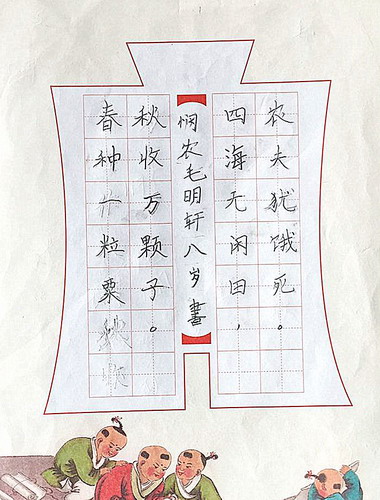 春种一粒粟
秋收万颗子。
悯农毛明轩八岁書
四海无闲田，
农夫犹饿死。